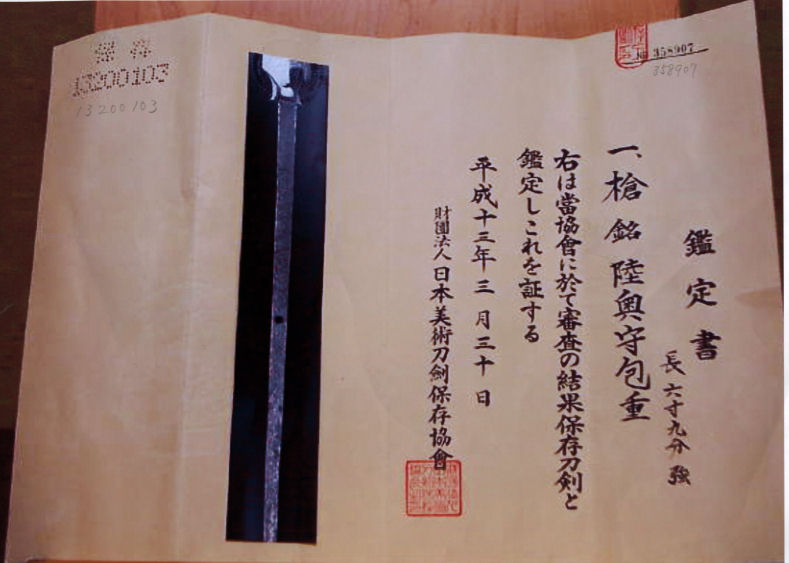 鑑定書
一、槍 銘 陸奥守包重
長 六寸九分強
右は當協會に於て審査の結果保存刀剣と
鑑定しこれを証する
平成十三年三月三十日
財團法人 日本美術刀劍保存協會
№ 358907
358907
保存
13200103
13200103